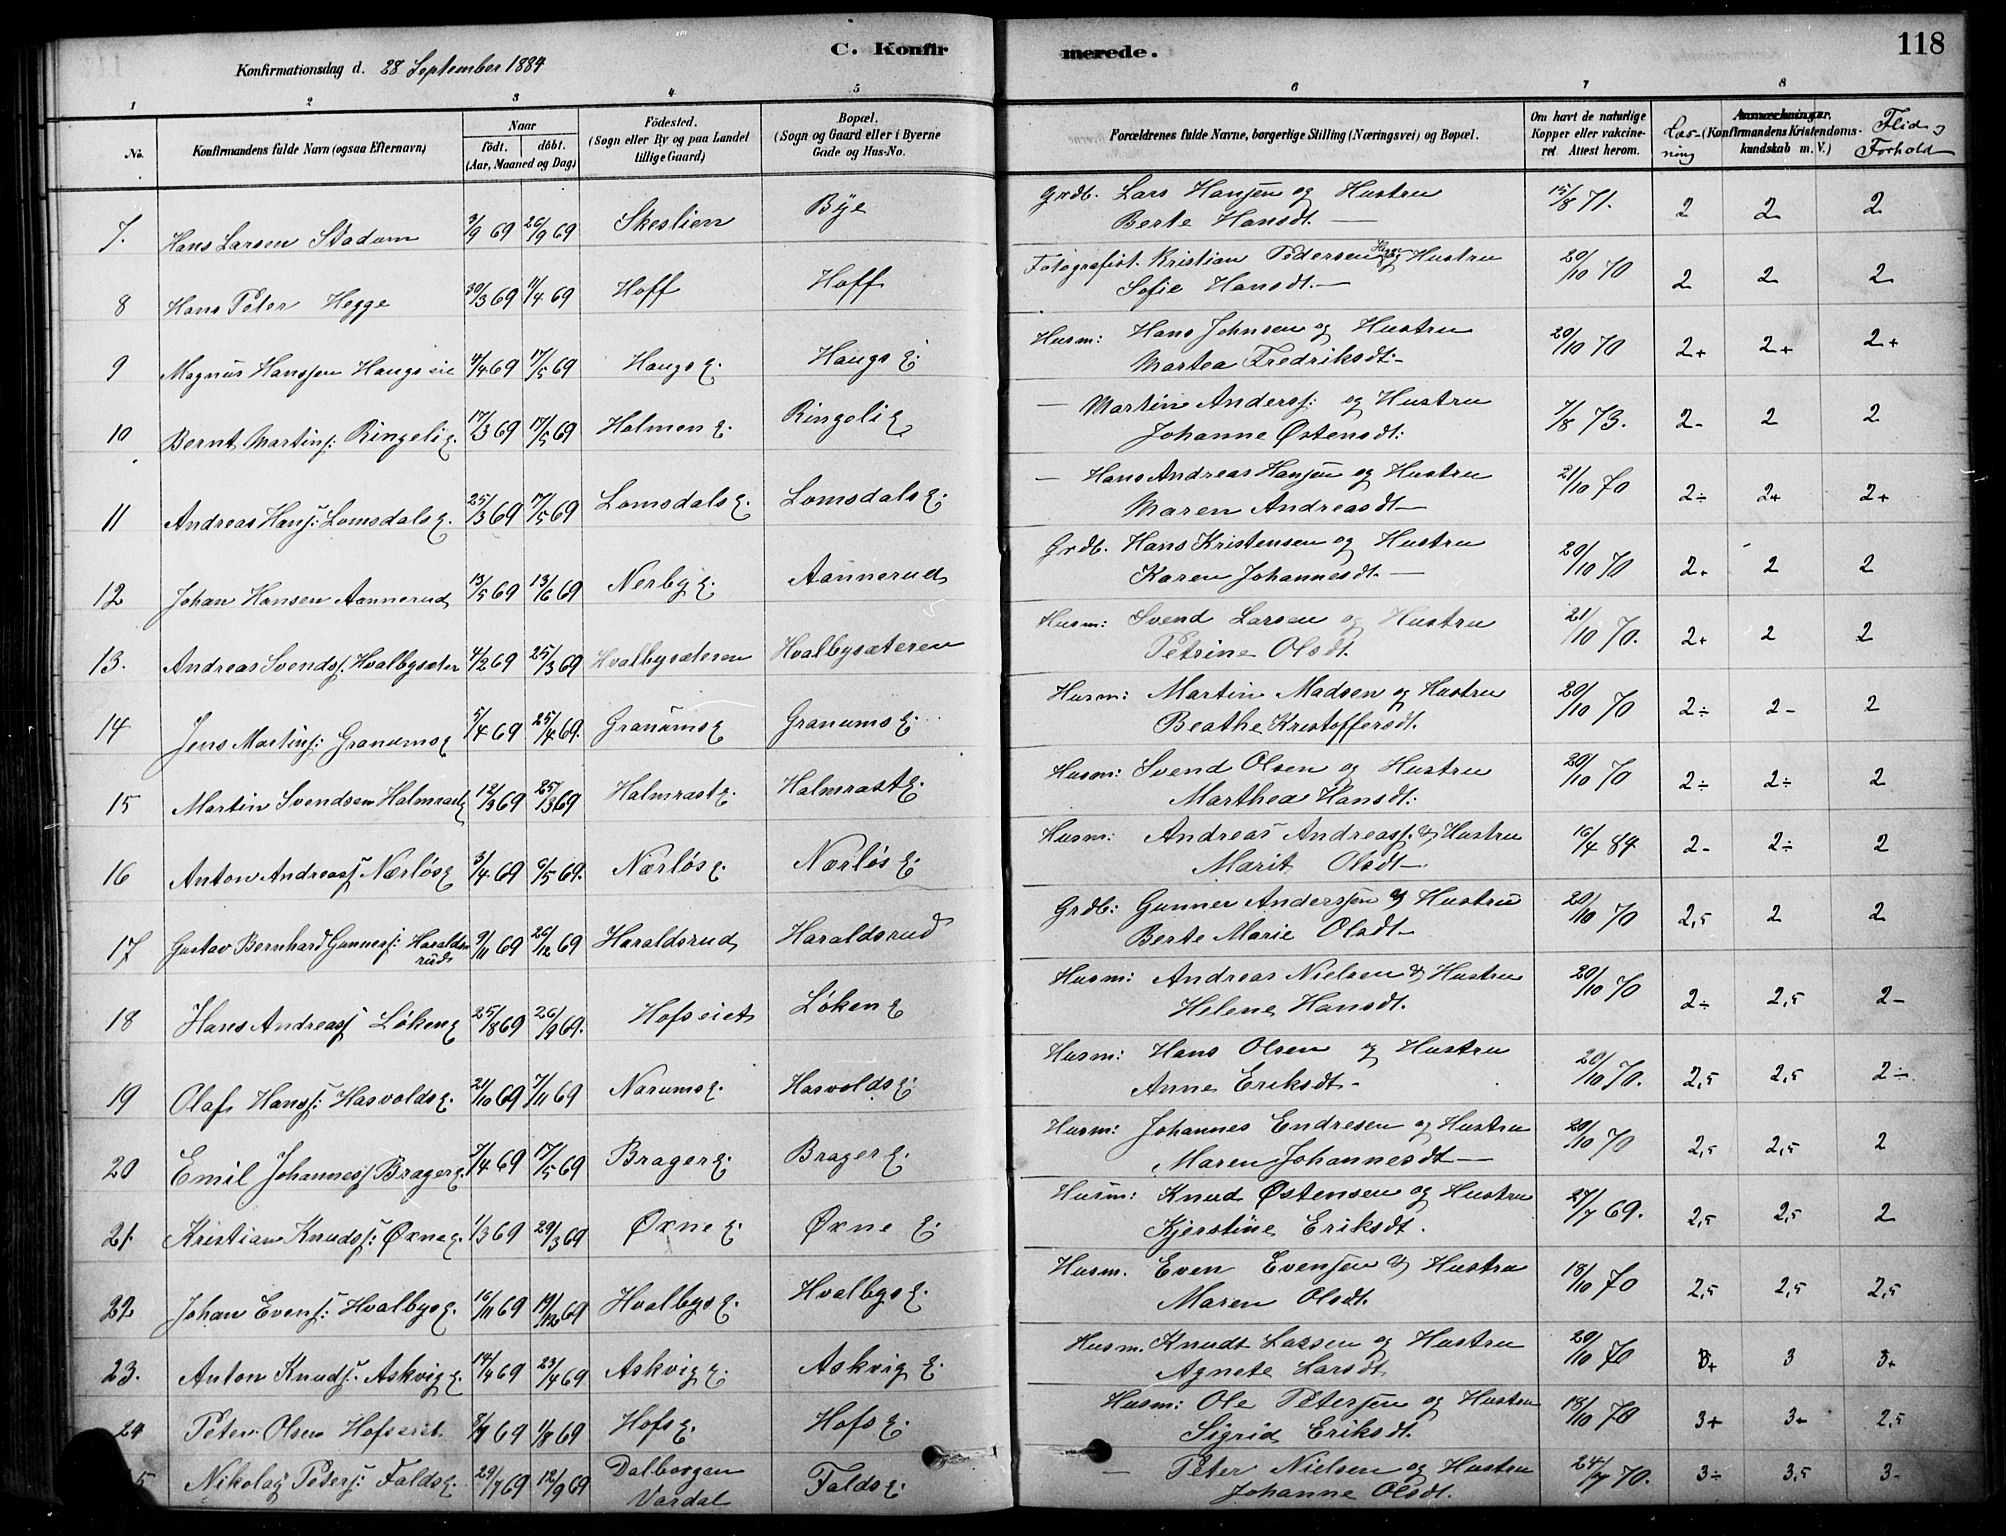 C. Konfirmerede.
118
Konfirmationsdag d. 28 September 1884
1 2 3 4 5 6 7 8
No. Konfirmandens fulde Navn (ogsaa Efternavn) Naar født. døbt. (Aar, Maaned og Dag) Fødested. (Sogn eller By og paa Landet tillige Gaard) Bopæl. (Sogn og Gaard eller i Byerne Gade og Hus-No. Forældrenes fulde Navne, borgerlige Stilling (Næringsvei) og Bopæl. Om havt de naturlige Kopper eller vakcineret Attest herom. Læsning Anmærkninger, (Konfirmandens Kristendomskundskab m. V.) Flid og Forhold
7. Hans Larsen Stadum 3/9 69 26/9 69 Skeslien Bye Grdb. Lars Hansen og Hustru Berte Hansdt. — 15/8 71. 2 2 2
8 Hans Peter Hegge 30/3 69 11/4 69 Hoff Hoff Fotografist. Kristian Pedersen Hegge og Hustru Sofie Hansdt. — 20/10 70 2 2 2
9 Magnus Hanssen Haugseie 4/4 69 17/5 69 Haugs E. Haugs E. Husm: Hans Johnsen og Hustru Martea Fredriksdt. 20/10 70 2+ 2+ 2+
10 Bernt Martins: Ringeli E. 17/3 69 17/5 69 Holmen E. Ringeli E — Martin Anders: og Hustru Johanne Østensdt: 7/8 73. 2- 2 2
11 Andreas Hans: Lomsdals E. 25/3 69 17/5 69 Lomsdals E. Lomsdals E. — Hans Andreas Hansen og Hustru Maren Andreasdt — 21/10 70 2÷ 2+ 2+
12 Johan Hansen Aannerud 13/5 69 13/6 69 Nerby E. Aannerud Grdb. Hans Kristensen og Hustru Karen Johannesdt. — 20/10 70 2+ 2 2
13. Andreas Svends: Hvalbysæter 4/2 69 25/3 69 Hvalbysæteren Hvalbysæteren Husm: Svend Larsen og Hustru Petrine Olsdt. 21/10 70. 2+ 2 2
14 Jens Martins: Granums E 5/4 69 25/4 69. Granums E Granums E. Husm: Martin Madsen og Hustru Beathe Kristoffersdt. 20/10 70 2÷ 2- 2
15 Martin Svendsen Halmrast E 12/3 69 25/3 69 Halmrast E. Halmrast E. Husm: Svend Olsen og Hustru Marthea Hansdt: 20/10 70 2÷ 2÷ 2
16 Anton Andreas: Nærløs E 3/4 69 6/5 69. Nærløs E. Nærløs E. Husm: Andreas Andreass. & Hustru Marit Olsdt — 16/4 84 2- 2÷ 2
17 Gustav Bernhard Gunners: Haraldsrud 9/11 69 26/12 69 Haraldsrud Haraldsrud Grdb: Gunner Anderssen & Hustru Berte Marie Olsdt — 20/10 70 2,5 2 2
18 Hans Andreass Løken E 25/8 69 26/9 69. Hofseiet Løken E Husm: Andreas Nielsen & Hustru Helene Hansdt. 20/10 70 2÷ 2,5 2-
19 Olaf Hans: Hasvolds E. 21/10 69 7/11 69 Narums E. Hasvolds E. Husm: Hans Olsen og Hustru Anne Eriksdt - 20/10 70. 2,5 2,5 2÷
20 Emil Johanness Brager E. 7/4 69 17/5 69 Brager E. Brager E. Husm: Johannes Endresen og Hustru Maren Johannesdt — 20/10 70 2,5 2,5 2
21. Kristian Knuds: Øxne E. 1/3 69 29/3 69 Øxne E. Øxne E. Husm: Knud Østensen og Hustru Kjerstine Eriksdt. 27/7 69. 2,5 2,5 2
22. Johan Evens: Hvalbys E. 16/11 69 19/12 69 Hvalbys E. Hvalbys E. Husm. Even Evensen & Hustru Maren Olsdt. 18/10 70 2,5 2,5 2,5
23. Anton Knuds: Askvig E. 14/4 69 23/4 69 Askvig E. Askvig E. Husm. Knudt Lassen og Hustru Agnete Larsdt. 20/10 70 3+ 3 3+
24 Peter Olsen Hofseiet. 69 1/8 69 Hofs E. Hofs E. Husm: Ole Petersen og Hustru Sigrid Eriksdt. 18/10 70 3+ 3+ 2,5
5 Nikolay Peters: Falds E. 29/7 69 12/9 69 Dalborgen Vardal Falds E. — Peter Nielsen og Hustru Johanne Olsdt. 24/7 70. 3÷ 3,5 3-